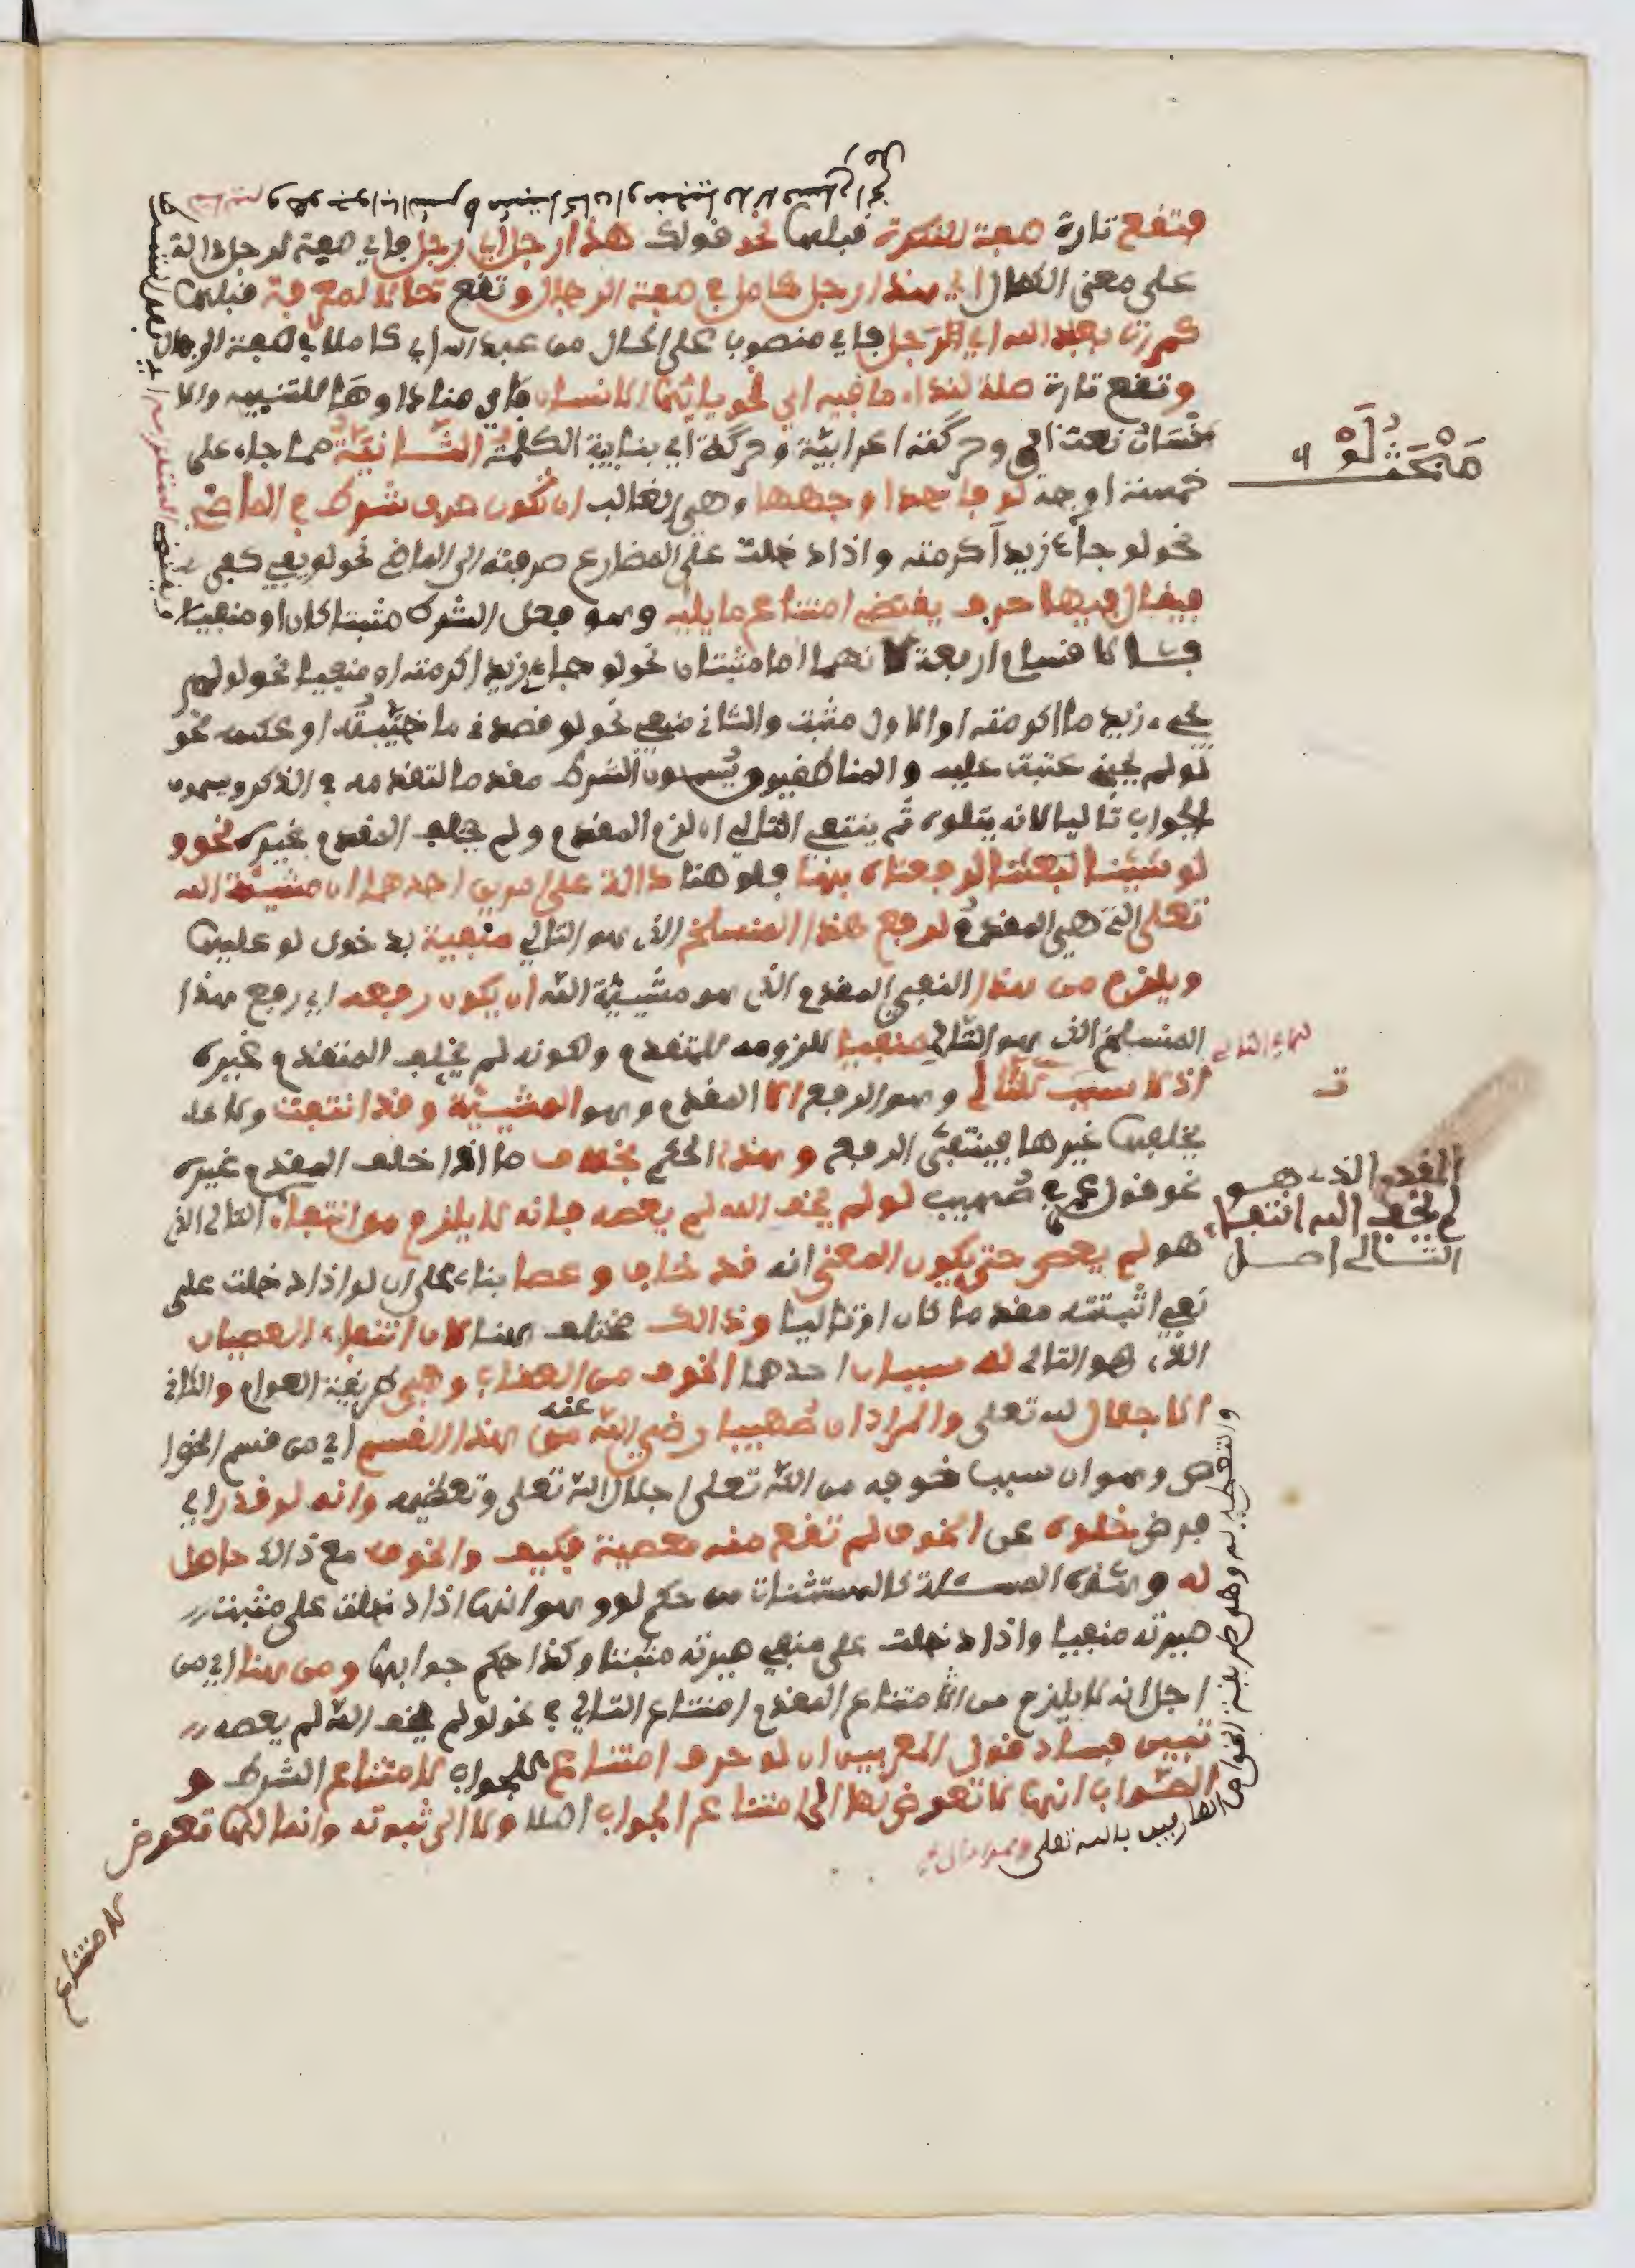 فتقع تارة صفة للنكرة قبلها نحو قولك هذا رجل أي رجل فأي صفة لرجل دالة
على معنى الكمال أي هذا رجل كامل في صفة الرجال وتقع حالا لمعرفة قبلها
كمررت بعبد الله أي رجل فأي منصوب على الحال من عبد الله أي كاملا في صفة الرجال
وتقع تارة صلة لنداء ما فيه ال نحو يا أيها الانسان فأي منادا وها للتنبيه والا
نسان نعت أي وحركته اعرابية وحركة أي بنائية الكلمة الثانية مما جاء على
خمسة اوجه لو فاحدا وجهها وهي الغالب ان تكون حرف شرط في الماضي
نحو لو جاء زيد أكرمته واذا دخلت على المضارع صرفته الى الماضي نحو لو يفي كفى
فيقال فيها حرف يقتضي امتناع ما يليه وهو فعل الشرط مثبتا كان او منفيا
فالاقسام اربعة لانهما اما مثبتان نحو لو جاء زيد اكرمته او منفيا نحو لو لم
يجيء زيد ما اكرمته او الاول مثبت والثاني منفي نحو لو قصدني ما خيبته او عكسه نحو
لو لم يجئني عتبت عليه والمناطقيون يسمون الشرط مقدما لتقدمه في الذكر ويسمون
الجواب تاليا لانه يتلوه ثم ينتفي التالي ان لزم المقدم ولم يخلف المقدم غيره نحو و
لو شئنا لبعثنا لرفعناه بها فلو هنا دالة على امرين احدهما ان مشيئة الله
تعلى التي هي المقدم لرفع هذا المنسلخ الذي هو التالي منفية بدخول لو عليها
ويلزم من هذا النفي المقدم الذي هو مشيئة الله ان يكون رفعه أي رفع هذا
المنسلخ الذي هو التالي منفيا للزومه للمتقدم ولكونه لم يخلف المتقدم غيره
اذ لا سبب للتالي وهو الرفع الا المقدم وهو المشيئة وقد انتفت ولا
يخلفها غيرها فينتفى الرفع وهذا الحكم بخلاف ما اذا خلف المقدم غيره
نحو قول عمر في صهيب لو لم يخف الله لم يعصه فانه لا يلزم من انتفاء التالي الذي
هو لم يعص حتى يكون المعنى انه قد خاف وعصا بناء على ان لو اذا دخلت على
نفي اثبتته مقدما كان او تاليا وذالك مختلف هنا لان انتفاء العصيان
الذي هو التالي له سببان احدهما الخوف من العقاب وهي طريقة العوام والثاني
الاجلال لله تعلى والمراد ان صهيبا رضي الله عنه من هذا القسم أي من قسم الخوا
ص وهو ان سبب خوفه من الله تعلى اجلال الله تعلى وتعظيمه وانه لو قدر أي
فرض خلوه عن الخوف لم تقع منه معصية فكيف والخوف مع ذالك حاصل
له وهذه المسئلة كالمستثنات من حكم لو وهو انها اذا دخلت على مثبت
صيرته منفيا واذا دخلت على منفي صيرته مثبتا وكذا حكم جوابها ومن هنا أي من
اجل انه لا يلزم من امتناع المقدم امتناع التالي في نحو لو لم يخف الله لم يعصه
تبين فساد قول المعربين ان لو حرف امتناع الجواب لامتناع الشرط و
الصواب انها لا تعرض لها الى امتناع الجواب اصلا ولا الى ثبوته وانما لها تعرض
لامتناع
مبحث لو
المقدم الذي هو
لم يخف الله انتفاء
التالي اصل
والتعظيم له وهي طريقة الخواص العارفين بالله تعلى